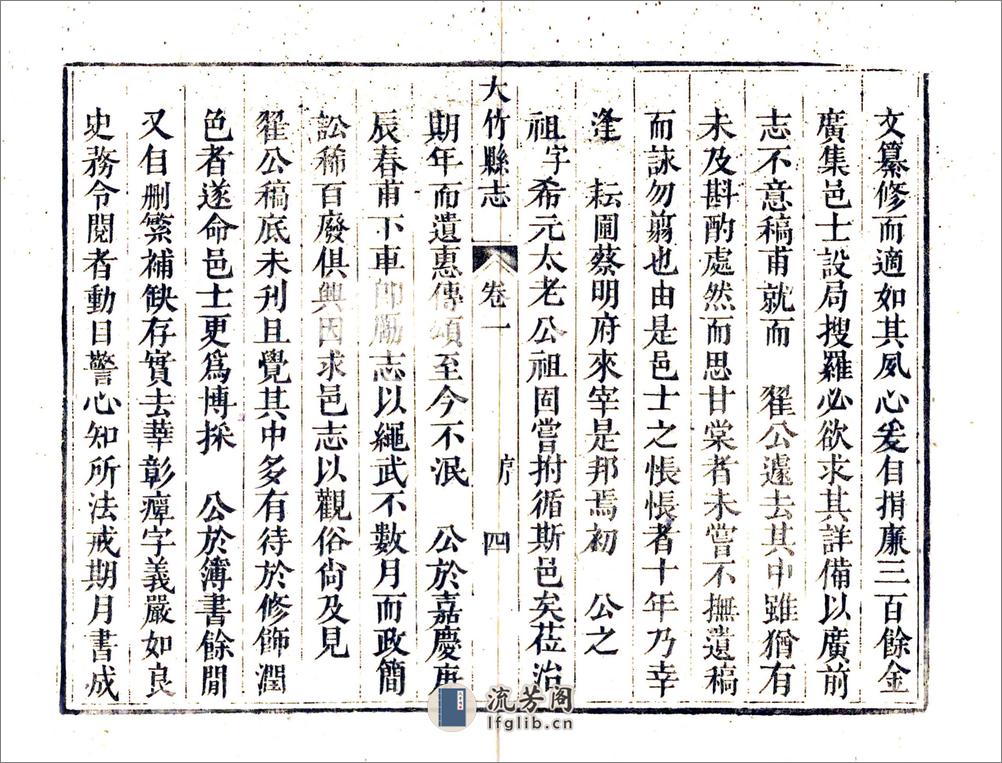 文纂修而適如其夙心爰自捐廉三百餘金
廣集邑士設局搜羅必欲求其詳備以廣前
志不意稿甫就而　翟公遽去其中雖猶有
未及斟酌處然而思甘棠者未嘗不撫遺稿
而詠勿翦也由是邑士之悵悵者十年乃幸
逢　耘圃蔡明府來宰是邦焉初　公之
祖字希元太老公祖固嘗拊循斯邑矣莅治
大竹縣志　卷一　序　四
期年而遺惠傳頌至今不泯　公於嘉慶庚
辰春甫下車即勵志以繩武不數月而政簡
訟稀百廢俱興因求邑志以觀俗尙及見
翟公稿底未刊且覺其中多有待於修飾潤
色者遂命邑士更爲博採　公於簿書餘閒
又自删繁補缺存實去華彰癉字義嚴如良
史務令閱者動目警心知所法戒期月書成
流芳阁
lfglib.cn